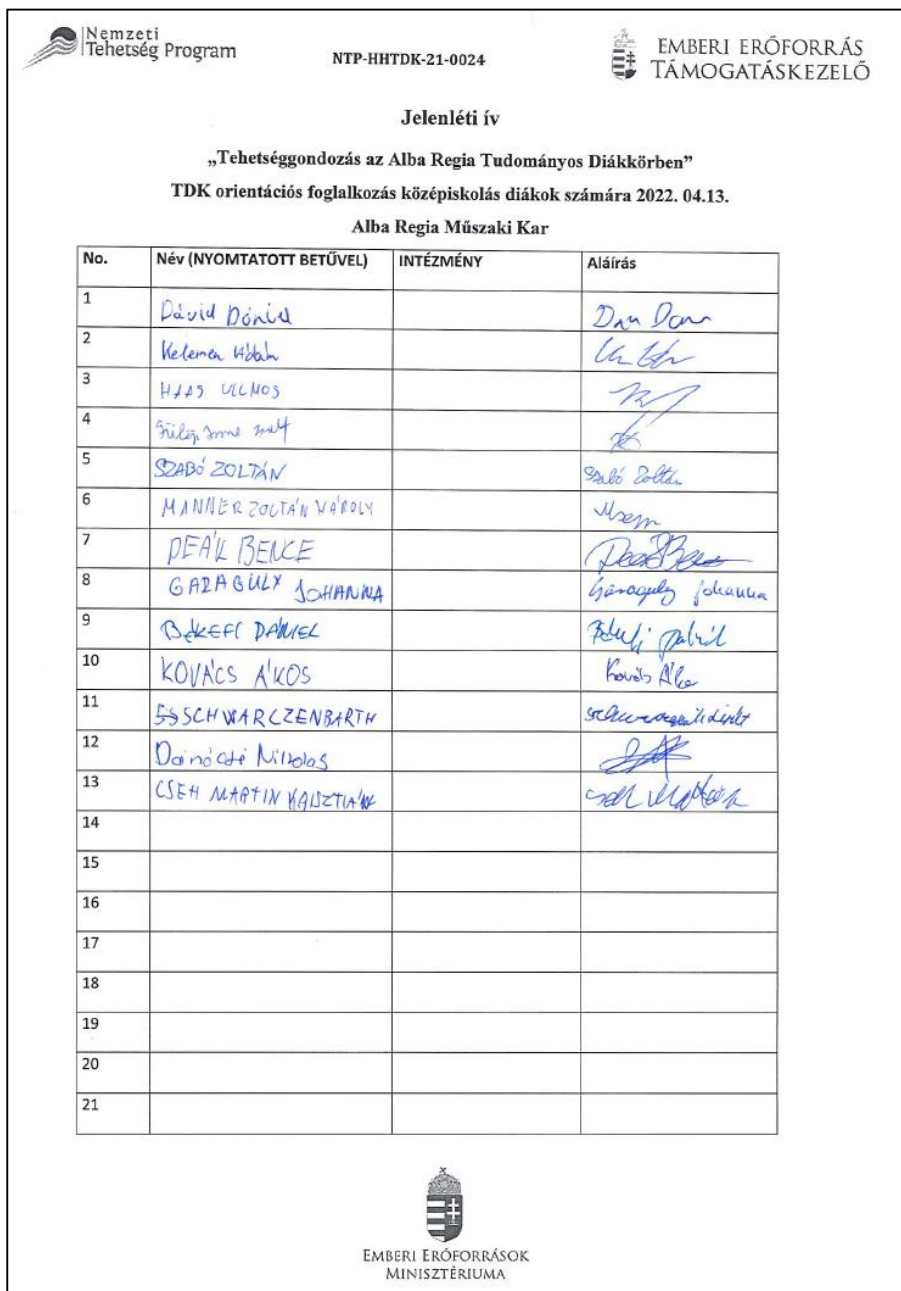 Nemzeti
Tehetség Program
NTP-HHTDK-21-0024
EMBERI ERŐFORRÁS
TÁMOGATÁSKEZELŐ
Jelenléti ív
„Tehetséggondozás az Alba Regia Tudományos Diákkörben”
TDK orientációs foglalkozás középiskolás diákok számára 2022. 04.13.
Alba Regia Műszaki Kar
No. Név (NYOMTATOTT BETŰVEL) INTÉZMÉNY Aláírás
1 Dávid Dániel
2 Kelemen Ádám
3 HAAS VILMOS
4 Fülöp Imre
5 SZABÓ ZOLTÁN Szabó Zoltán
6 MANNER ZOLTÁN KÁROLY
7 DEÁK BENCE
8 GARAGULY JOHANNA Garaguly Johanna
9 BÉKEFI DÁNIEL
10 KOVÁCS ÁKOS Kovács Ákos
11 SCHWARCZENBARTH
12 Nikolas
13 CSEH MARTIN KRISZTIÁN
14
15
16
17
18
19
20
21
EMBERI ERŐFORRÁSOK
MINISZTÉRIUMA